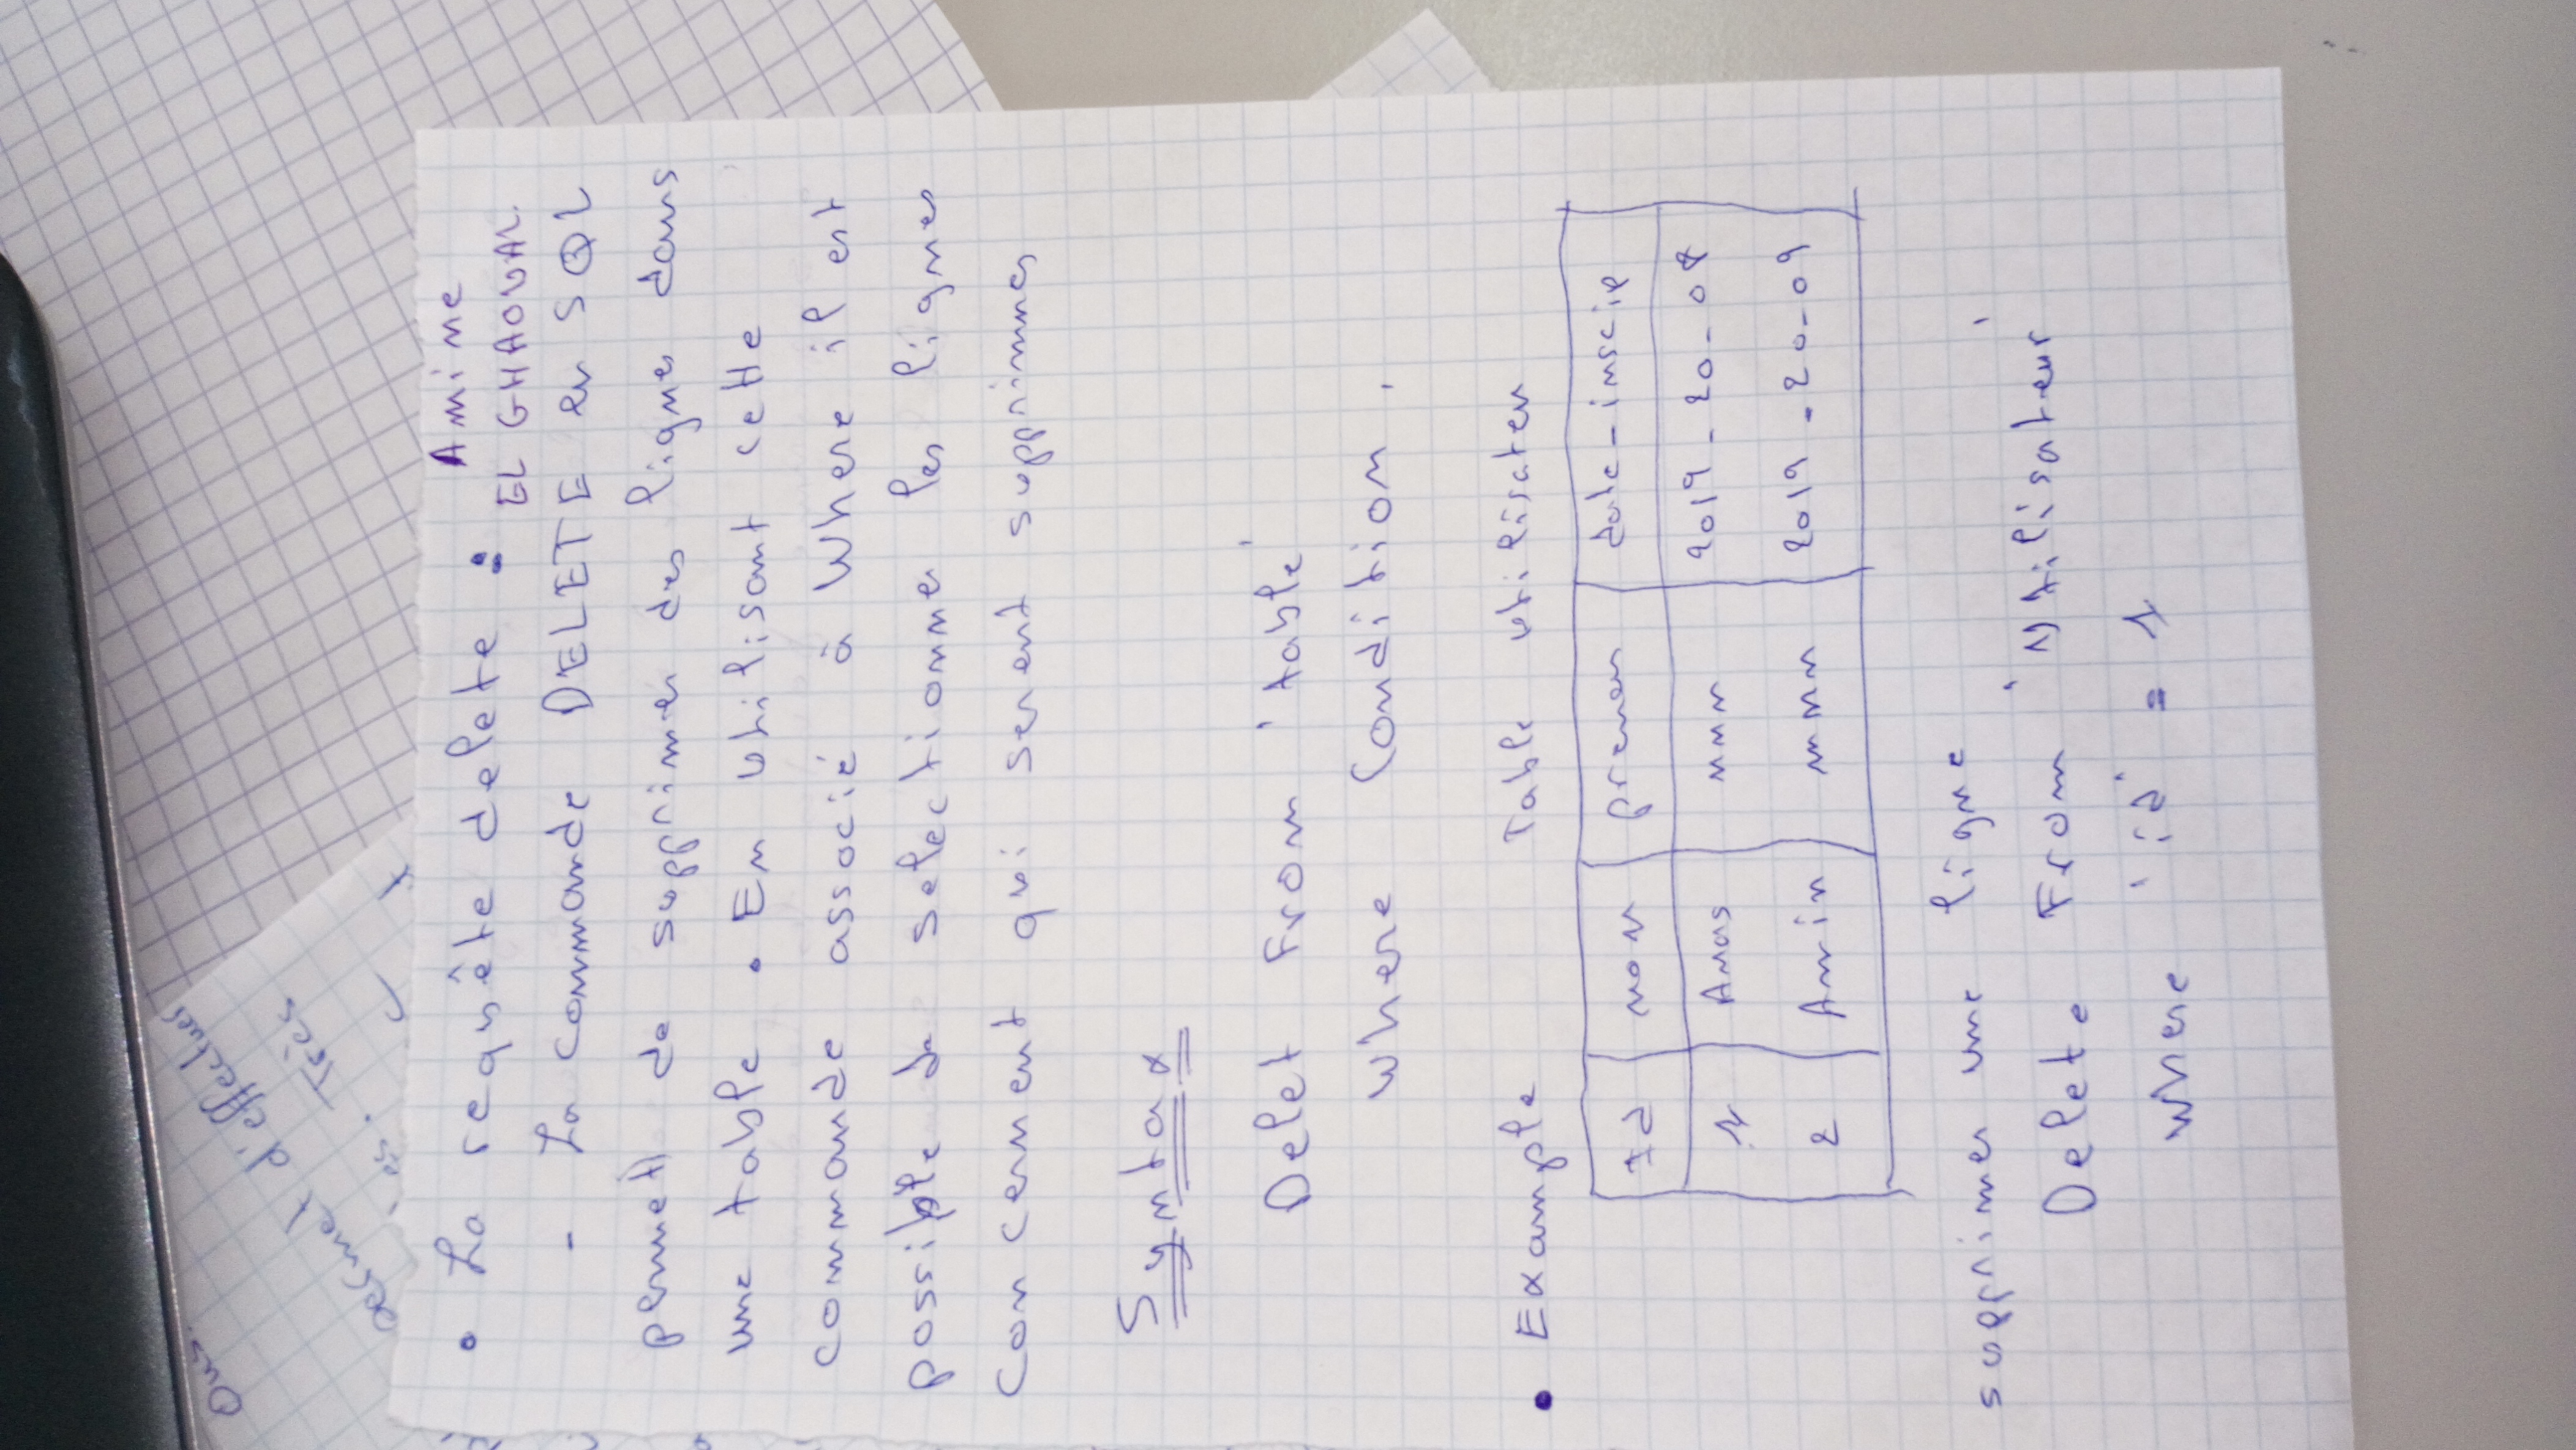 Ous.
permet d'effectuer
es. Très
• La requête delete : Amine
EL GHAOUAL.
- La commande DELETE en SQL
permet de supprimer des lignes dans
une table . En utilisant cette
commande associé à Where il est
possible de selectionner les lignes
concernent qui serent supprimmes
Syntax
Delet From 'table'
where Condition .
• Example Table utilisateu
Id nom prenom date-inscip
1 Anas nnn 2019-20-08
2 Amin mmn 2019-20-09
supprimer une ligne
Delete From 'Utilisateur'
where 'id' = 1